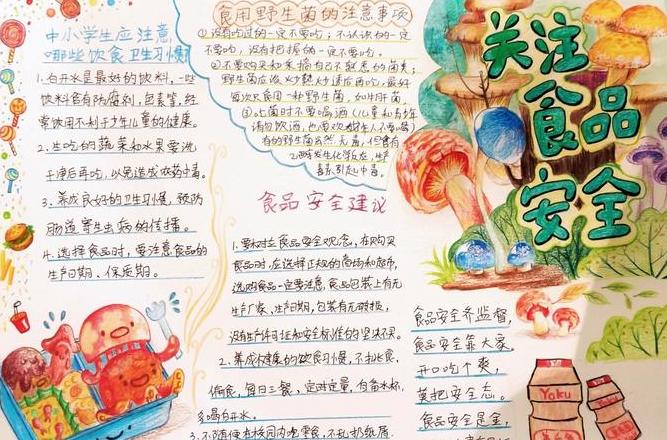 关注
食品
安全
中小学生应注意
哪些饮食卫生习惯
1.白开水是最好的饮料,一些
饮料含有防腐剂,色素等,经
常饮用不利于少年儿童的健康。
2.生吃的蔬菜和水果要洗
干净后再吃,以免造成农药中毒。
3.养成良好的卫生习惯,预防
肠道寄生虫病的传播。
4.选择食品时,要注意食品的
生产日期、保质期。
食用野生菌的注意事项
①没有吃过的一定不要吃;不认识的一定
不要吃,没有把握的一定不要吃。
②不要购买和采摘自己不熟悉的菌类;
野生菌应该炒熟炒透后再吃,最好
每次只食用一种野生菌,如牛肝菌
③吃菌时不要喝酒
有的野生菌虽然无毒,但含有
食品安全建议
食品时,应选择正规的商场和超市,
选购食品一定要注意,食品包装上有无
生产厂家、生产日期,包装有无破损,
没有生产许可证和安全标准的坚决不买。
2.养成健康的饮食习惯,不挑食、
偏食,每日三餐,定时定量,自备水杯,
多喝白开水。
3.不随便在校园内吃零食,不乱扔纸屑
食品安全齐监督,
食品安全靠大家,
开口吃个爽,
莫把安全忘。
食品安全是金,
Yaku